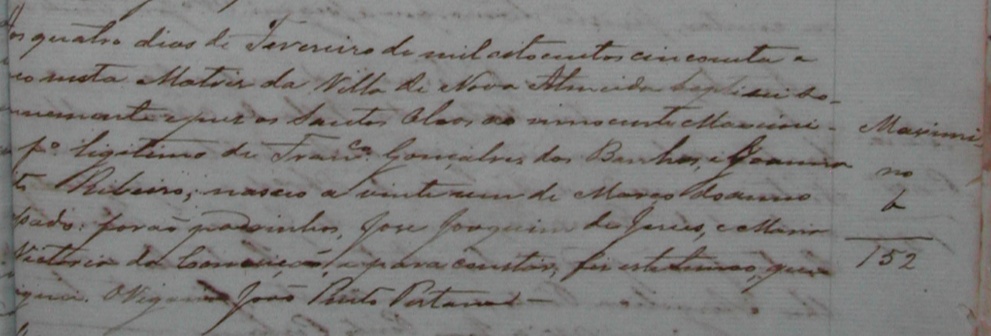 os quatro dias de Fevereiro de mil oitocentos cincoenta e
co nesta Matriz da Villa de Nova Almeida baptisei so-
nemente e puz os Santos Oleos ao innocente Maximi-
fº legitimo de Franco Gonçalves dos Banhos, e Joanna
Ribeiro; nasceo a vinte e um de Março do anno
sado: forão padrinhos, Jose Joaquim de Jesus, e Maria
Victoria da Conceição, e para constar, fiz este termo, que
signei. O Vigario João Pinto Pestana
Maximi
no
b
152